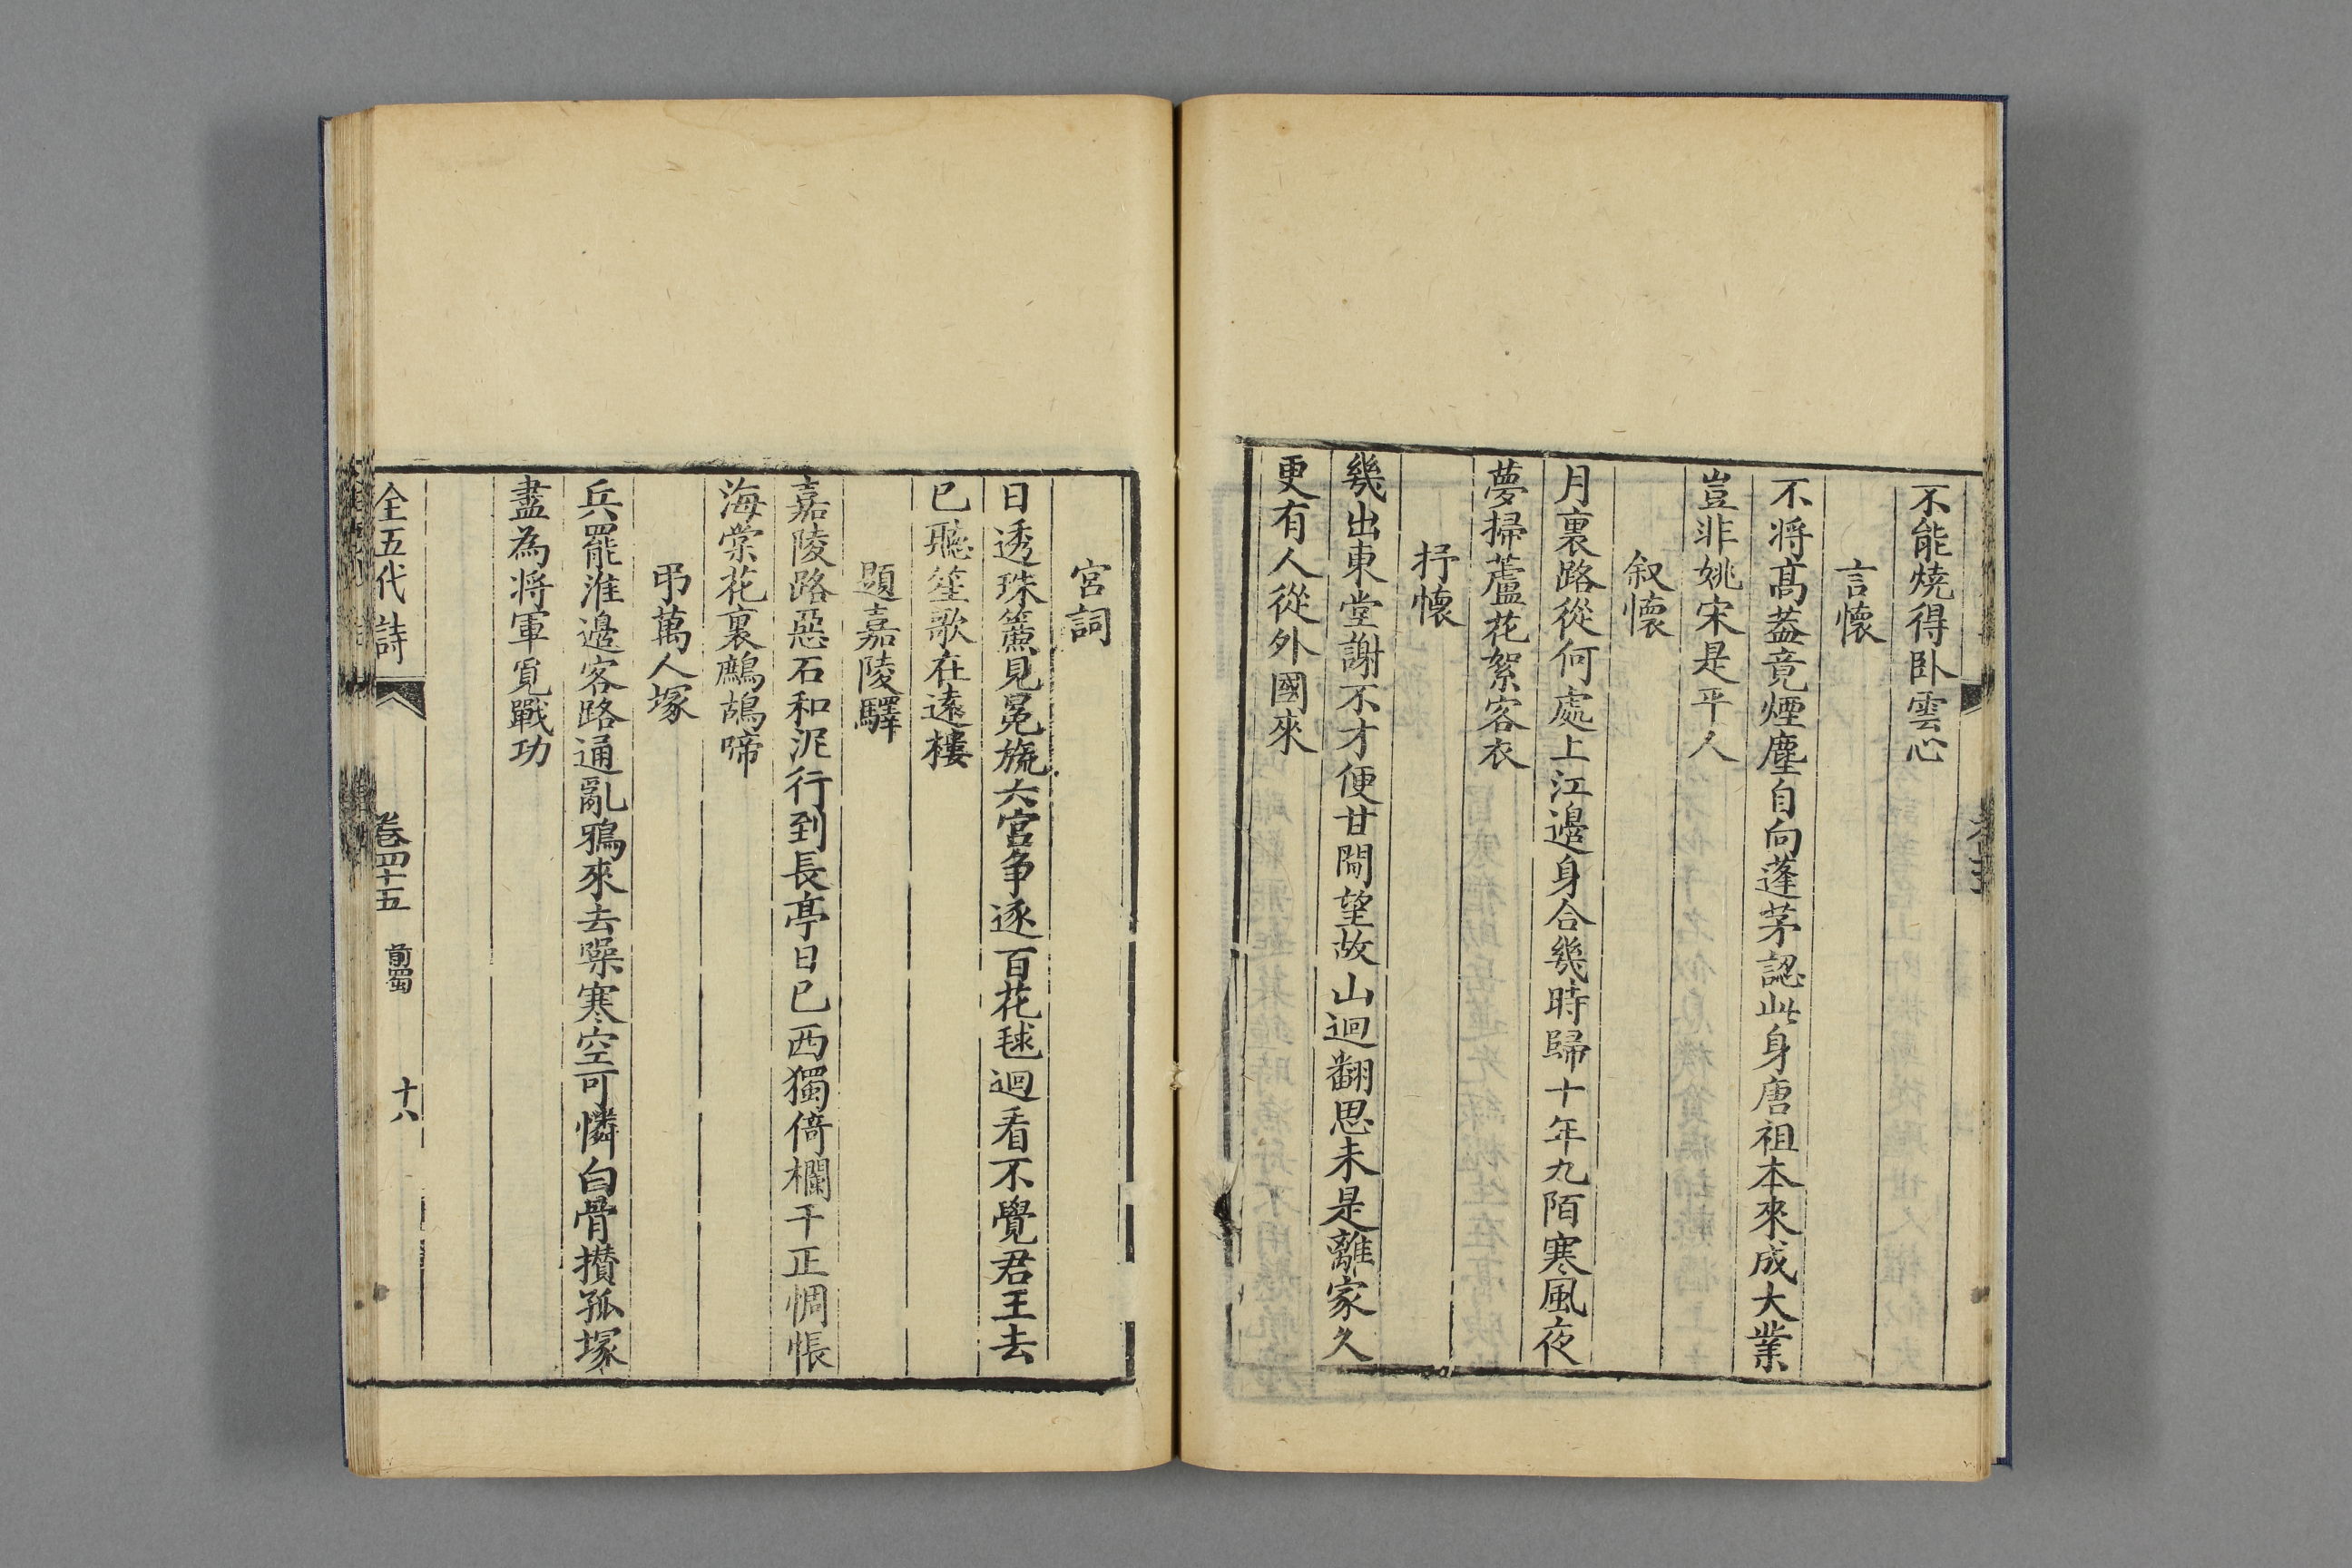 不能燒得臥雲心
言懷
不將髙葢竟煙塵自向蓬茅認此身唐祖本來成大業
豈非姚宋是平人
叙懷
月裏路從何處上江邊身合幾時歸十年九陌寒風夜
夢掃蘆花絮客衣
抒懷
幾出東堂謝不才便甘閒望故山迴翻思未是離家久
更有人從外國來
宮詞
日透珠簾見冕旒六宮爭逐百花毬迴看不覺君王去
已聽笙歌在遠樓
題嘉陵驛
嘉陵路惡石和泥行到長亭日已西獨倚欄干正惆悵
海棠花裏鷓鴣啼
弔萬人塚
兵罷淮邊客路通亂鴉來去噪寒空可憐白骨攢孤塚
盡為將軍覓戰功
全五代詩
卷四十五
前蜀
十八